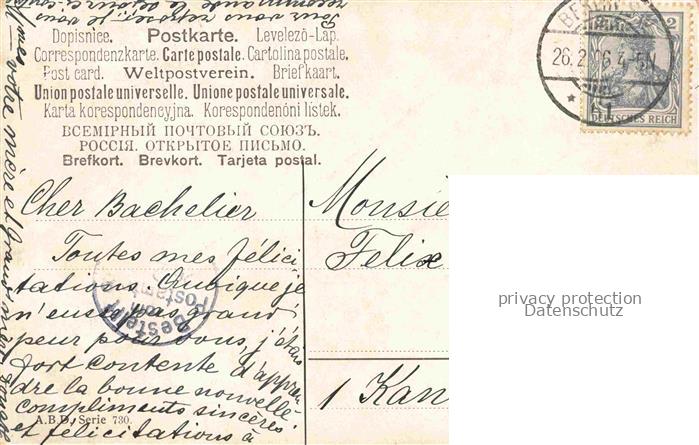 Dopisnice. Postkarte. Levelező-Lap.
Correspondenzkarte. Carte postale. Cartolina postale.
Post card. Weltpostverein. Briefkaart.
Union postale universelle. Unione postale universale.
Karta korespondencyjna. Korespondenóni listek.
ВСЕМІРНЫЙ ПОЧТОВЫЙ СОЮЗЪ.
РОССІЯ. ОТКРЫТОЕ ПИСЬМО.
Brefkort. Brevkort. Tarjeta postal.
BERLIN
26.2. 6.4-5N.
2
DEUTSCHES REICH
Cher Bachelier
Toutes mes félici
tations. Quoique je
n'eus pas grand
peur pour vous, j'étais
fort contente d'appren
dre la bonne nouvelle
compliments sincères
et félicitations à
votre mère et
Pour vous
Bestellt
vom
Postamte
A.B.D. Serie 730.
Monsie
Felix
1 Kan
privacy protection
Datenschutz